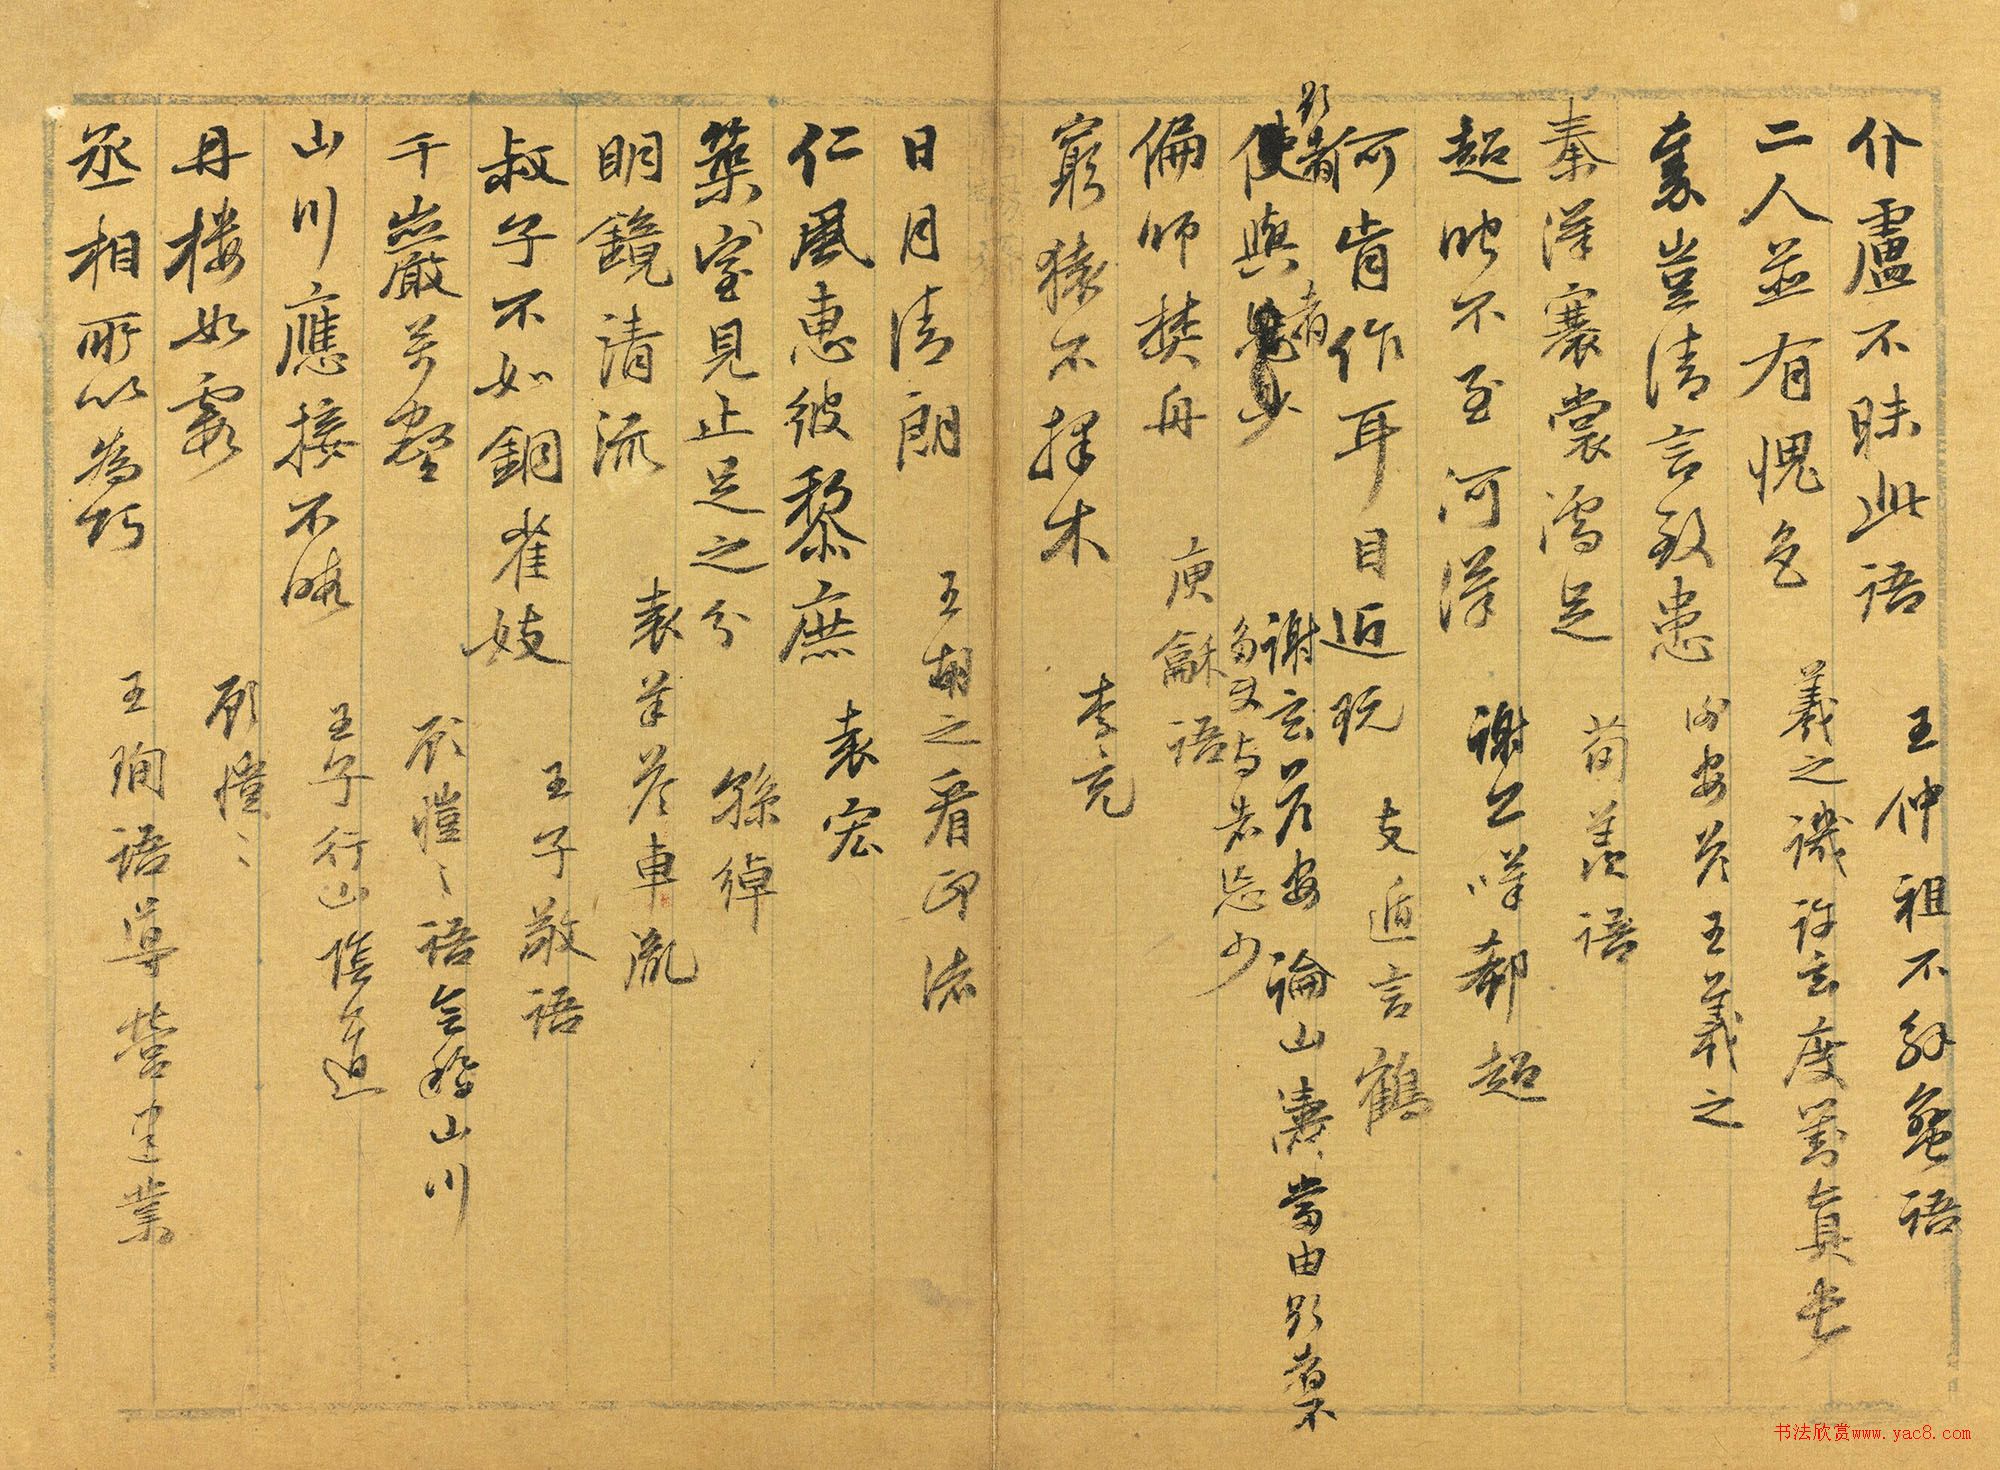 介盧不昧此語　王仲祖不解蠻語
二人並有愧色　羲之譏許玄度等真長
秦豈清言致患　謝安答王羲之
秦漢褰裳濡足　荀羨語
超此不至河漢　謝公嘆郗超
何肯作耳目近玩　支遁言鶴
欲者
使與者少　謝玄答安論山濤當由欲者不
多使與者忘少
偏師焚舟　庾龢語
窮猿不擇木　李充
日月清朗　王胡之看印渚
仁風惠彼黎庶　袁宏
築室見止足之分　孫綽
明鏡清流　袁羊答車胤
叔子不如銅雀妓　王子敬語
千巖萬壑　顧愷之語會稽山川
山川應接不暇　王子行山陰道
丹樓如霞　顧愷之
丞相所以為巧　王珣語導營建業
书法欣赏www.yac8.com